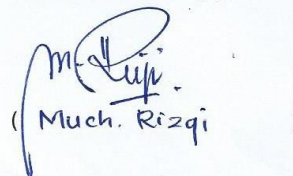 ( Much. Rizqi